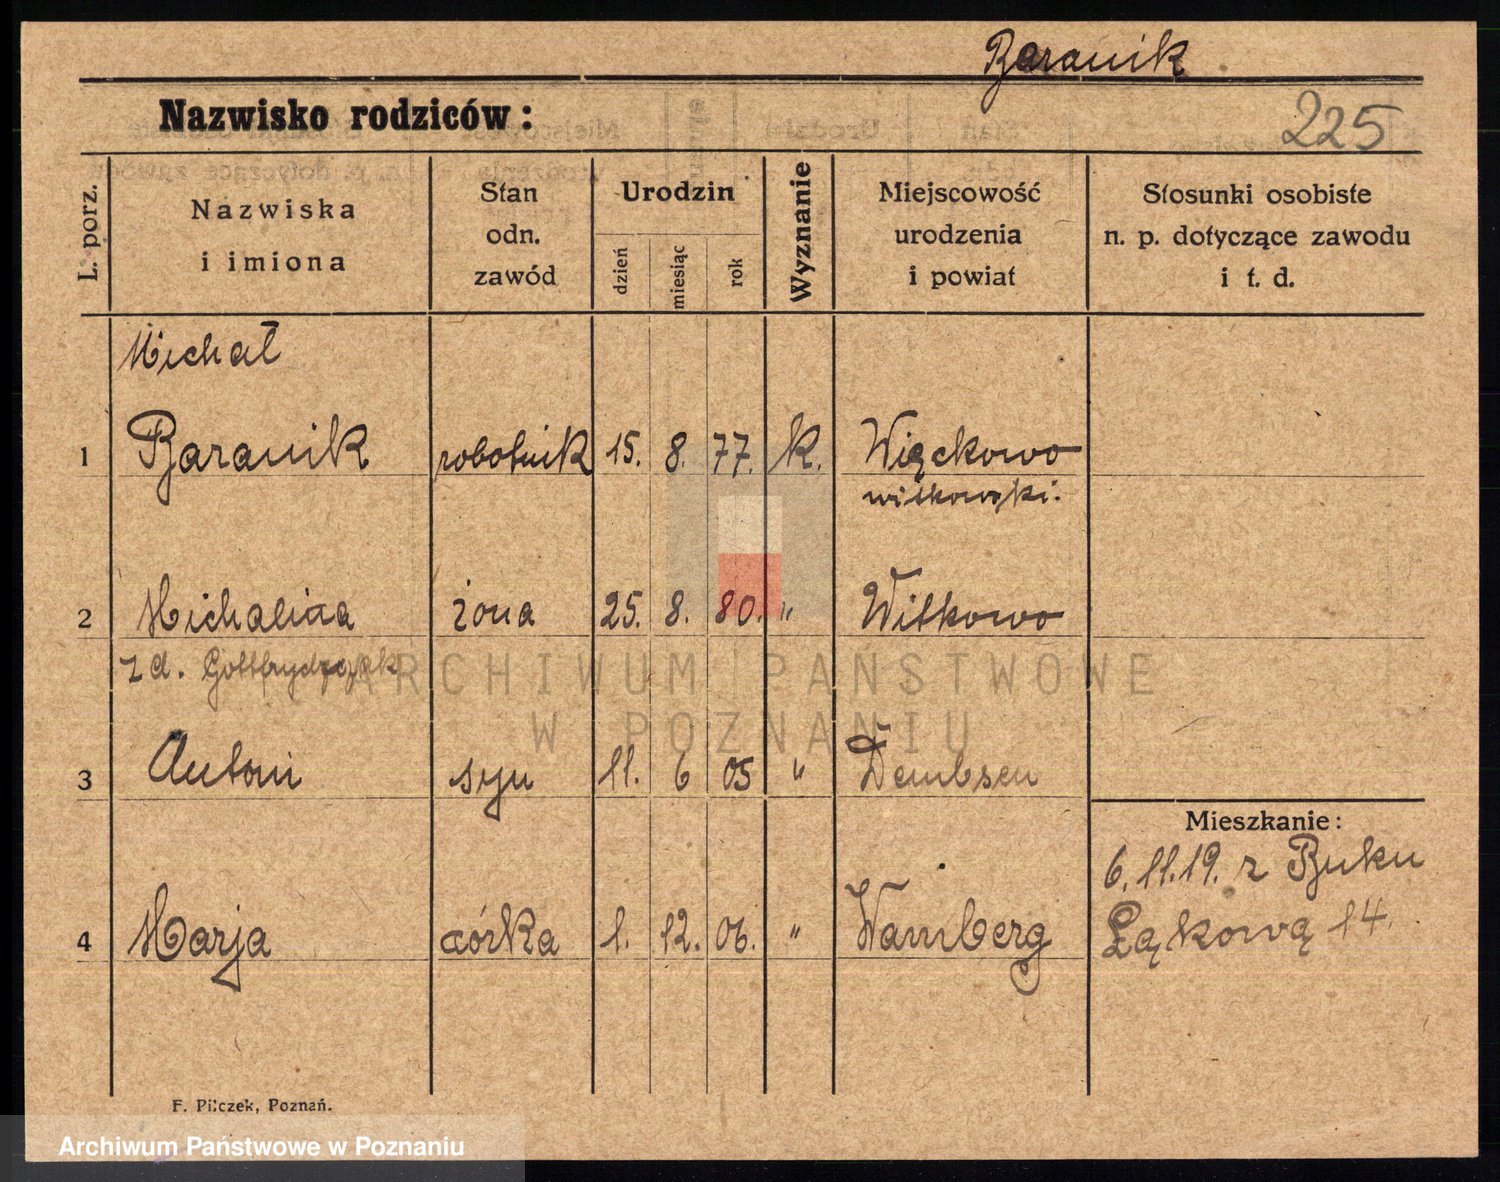 Baranik
Nazwisko rodziców:
225
L. porz.
Nazwiska
i imiona
Stan
odn.
zawód
Urodzin
dzień
miesiąc
rok
Wyznanie
Miejscowość
urodzenia
i powiat
Stosunki osobiste
n. p. dotyczące zawodu
i t. d.
Michał
1 Baranik robotnik 15. 8. 77. k. Więckowo
witkowski.
2 Michalina żona 25. 8. 80. " Witkowo
z d. Gottfrydczak
ARCHIWUM PAŃSTWOWE
W POZNANIU
3 Antoni syn 11. 6 05 " Dembsen
Mieszkanie:
6.11.19. z Buku
4 Marja córka 1. 12. 06. " Wamberg Łąkową 14.
F. Pilczek, Poznań.
Archiwum Państwowe w Poznaniu